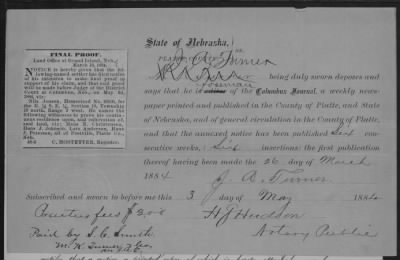 FINAL PROOF.
Land Office at Grand Island, Neb.,
March 18, 1884.
NOTICE is hereby given that the fol-
lowing-named settler has filed notice
of his intention to make final proof in
support of his claim, and that said proof
will be made before Judge of the District
Court at Columbus, Neb., on May 3d,
1884, viz:
Nils Jensen, Homestead No.
for the
names the
following witnesses to prove his contin-
uous residence upon, and cultivation of,
said land, viz: Hans R. Christensen,
Hans J. Johnson, Lars Anderson, Hans
J. Petersen, all of Postville, Platte Co.,
Neb.
C. HOSTETTER, Register.
State of Nebraska,
being duly sworn deposes and
says that he is foreman of the Columbus Journal, a weekly news-
paper printed and published in the County of Platte, and State
of Nebraska, and of general circulation in the County of Platte,
and that the annexed notice has been published Six con-
secutive weeks, (Six insertions) the first publication
thereof having been made the 26 day of March
1884
J. A. Turner
Subscribed and sworn to before me this 3 day of May 1884
H J Hudson
Notary Public
fees $
Paid by S. C. Smith
M. K. Turner & Co.